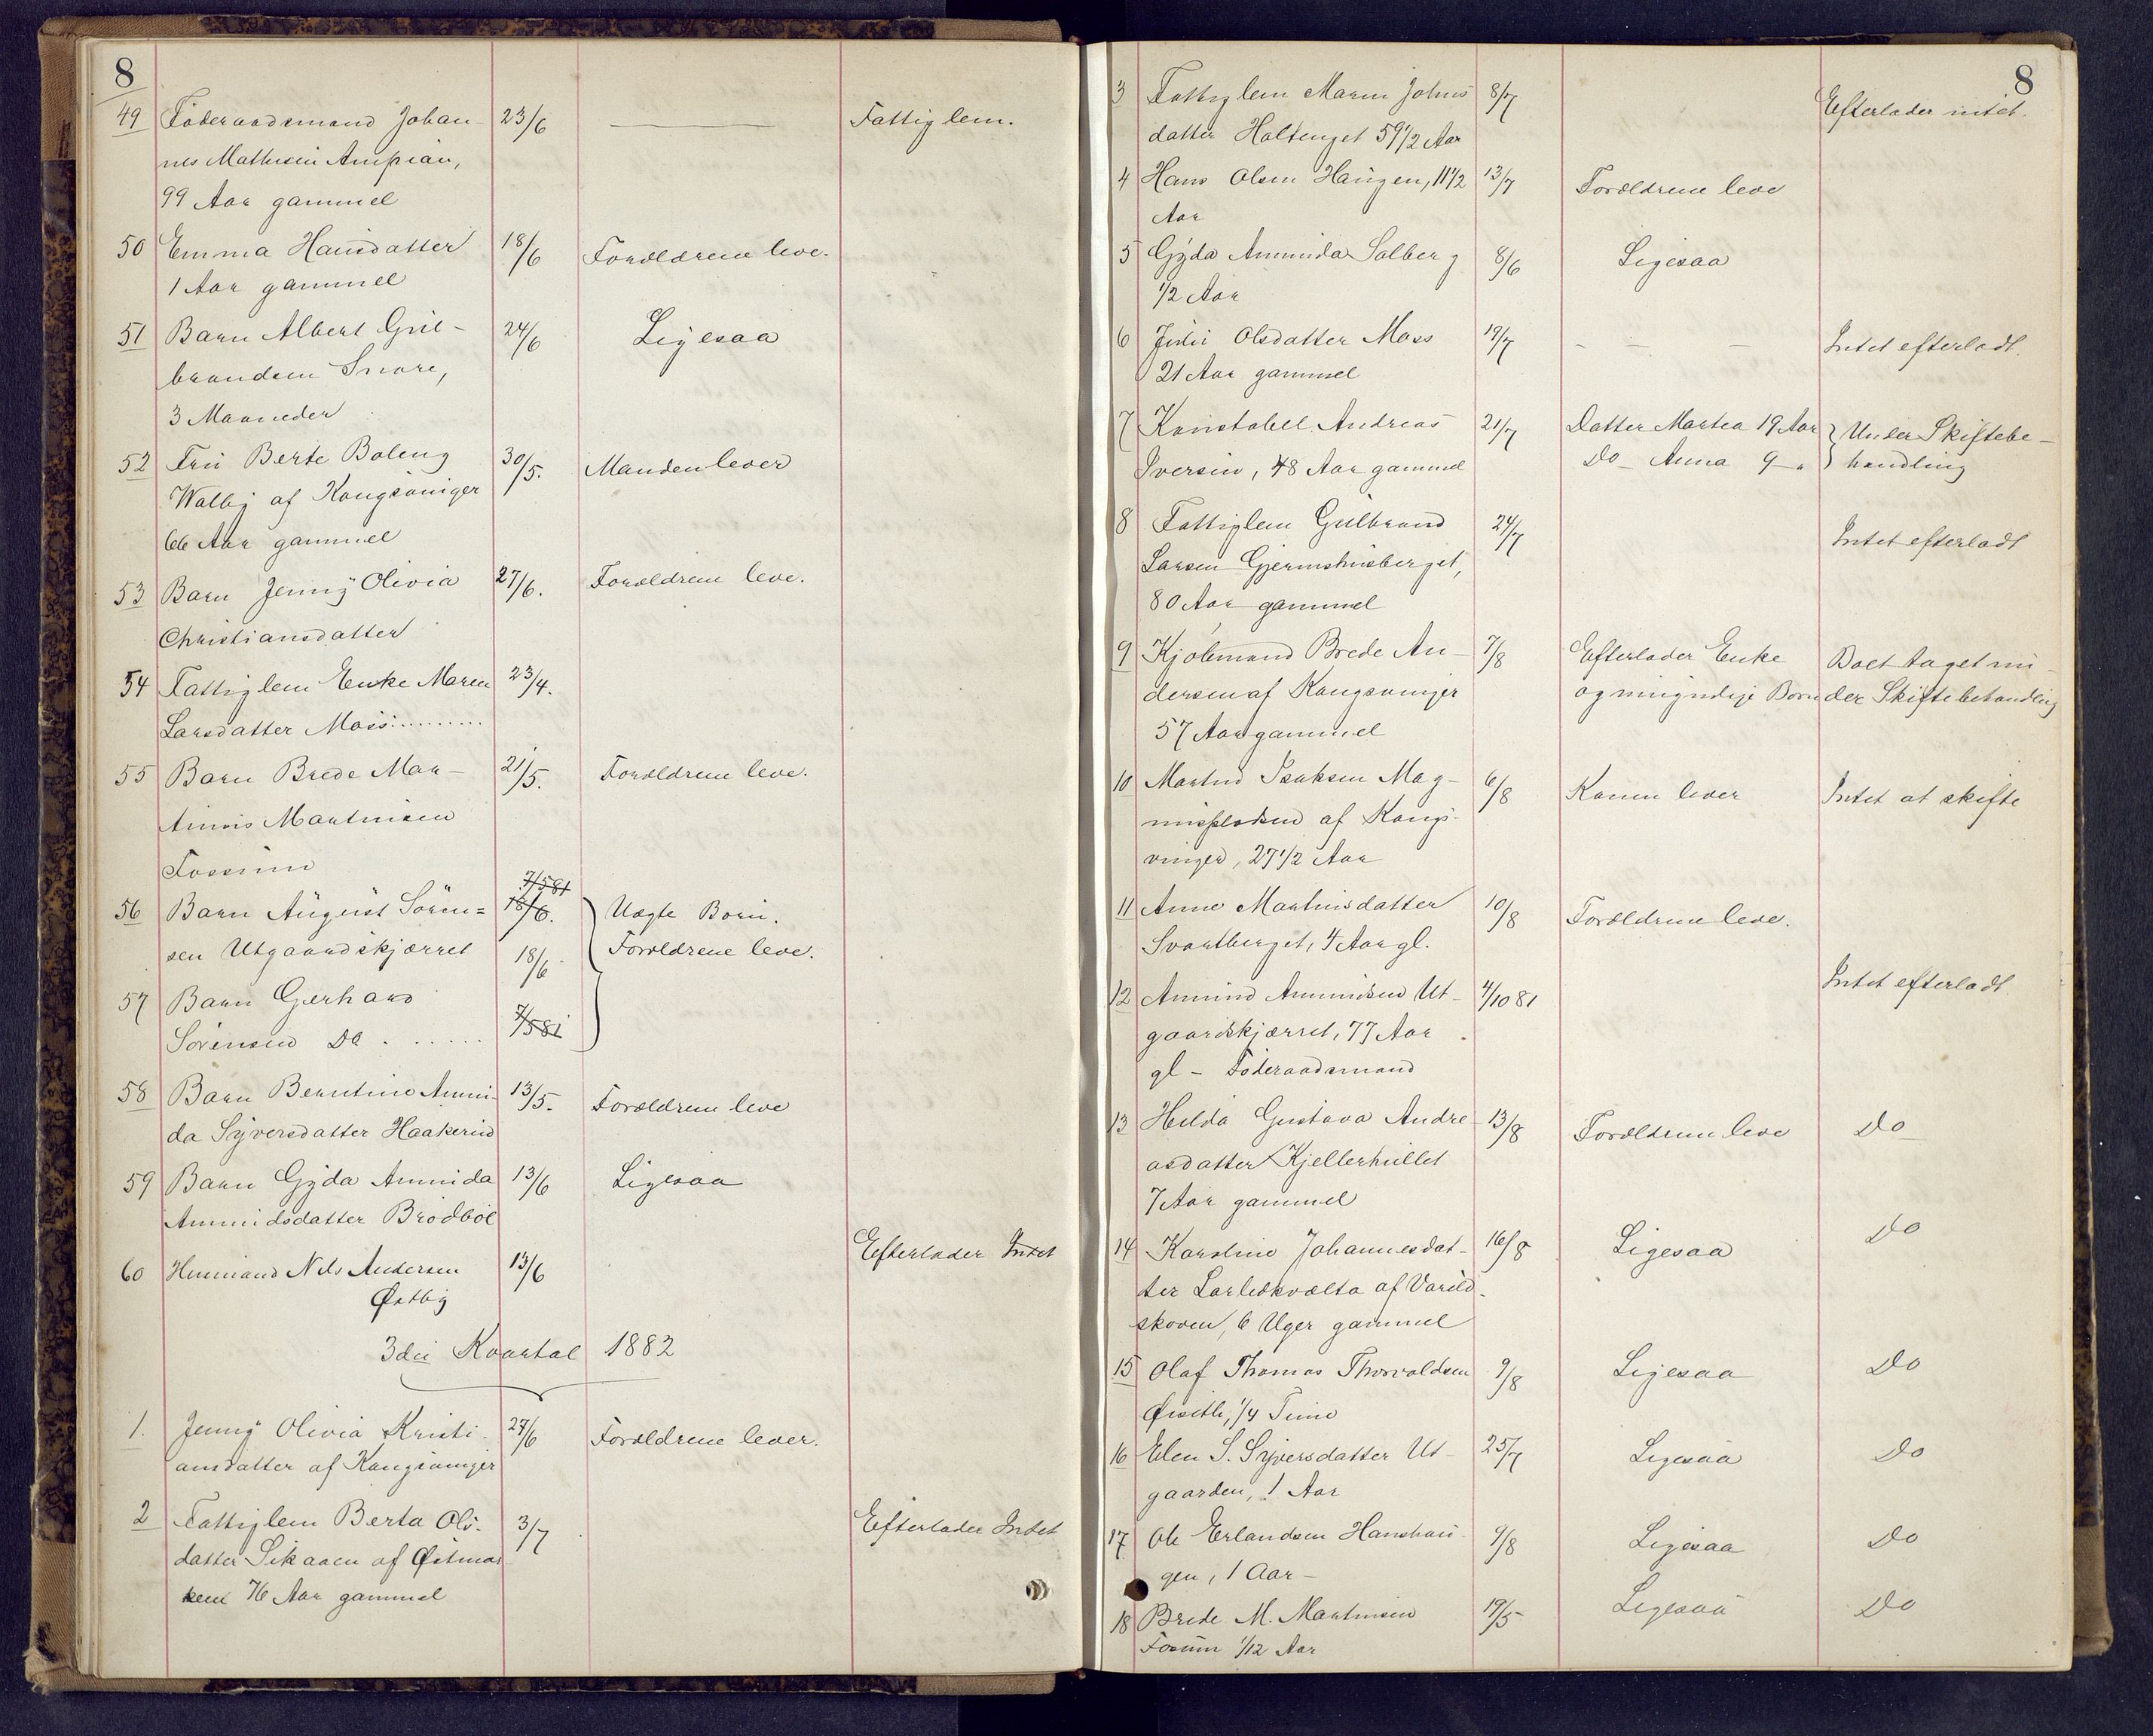 8
49 Föderaadsmand Johan- 23/6 Fattiglem.
nes Mathisen Ampian,
99 Aar gammel
50 Emma Hansdatter 18/6 Forældrene leve.
1 Aar gammel
51 Barn Albert Gul- 24/6 Ligesaa
brandsen Snare,
3 Maaneder
52 Fru Berte Boleng 30/5. Manden lever
Walby af Kongsvinger
66 Aar gammel
53 Barn Jenny Olivia 27/6. Forældrene leve.
Christiansdatter
54 Fattiglem Enke Maren 23/4.
Larsdatter Moss
55 Barn Brede Mar- 21/5. Forældrene leve.
tinius Martinsen
Fossum
7/5 81
56 Barn August Sören= 18/6. Uægte Born.
sen Utgaardskjærret 18/6 Forældrene leve.
57 Barn Gerhard
Sörensen Do 7/5 81
58 Barn Berntine Amun- 13/5. Forældrene leve
da Syversdatter Haakerud
59 Barn Gyda Amunda 13/6 Ligesaa
Amundsdatter Brödböl
60 Huusmand Nils Andersen 13/6 Efterlader Intet
Østby
3die Kvartal 1882
1. Jenny Olivia Kristi- 27/6 Forældrene lever.
ansdatter af Kongsvinger
2 Fattiglem Berta Ols- 3/7 Efterlader Intet
datter Sikaaen af Østmar
ken 76 Aar gammel
8
3 Fattiglem Maren Johns 8/7 Efterlader intet.
datter Holtenget 59 1/2 Aar
4 Hans Olsen Haugen, 11 1/2 13/7 Forældrene leve
Aar
5 Gyda Amunda Solberg 8/6 Ligesaa
1/2 Aar
6 Julie Olsdatter Moss 19/7 - - - Intet efterladt.
21 Aar gammel
7 Konstabel Andreas 21/7 Datter Martea 19 Aar } Under Skiftebe-
Iversen, 48 Aar gammel Do - Anna 9 - " } handling
8 Fattiglem Gulbrand 24/7 Intet efterladt
Larsen Gjermshusberget,
80 Aar gammel
9 Kjöbmand Brede An- 7/8 Efterlader Enke Boet taget un-
dersen af Kongsvinger og myndige Born der Skiftebehandling
57 Aar gammel
10 Martin Isaksen Mag- 6/8 Konen lever Intet at skifte
nuspladsen af Kongs-
vinger, 27 1/2 Aar
11 Anne Martinsdatter 10/8 Forældrene leve.
Svartberget, 4 Aar gl.
12 Amund Amundsen Ut- 4/10 81 Intet efterladt.
gaardskjærret, 77 Aar
gl - Föderaadsmand
13 Hilda Gustava Andre- 13/8 Forældrene leve Do
asdatter Kjellerhullet
7 Aar gammel
14 Karoline Johannesdat- 16/8 Ligesaa Do
ter af Varild-
skoven, 6 Uger gammel
15 Olaf Thomas Thorvaldsen 9/8 Ligesaa Do
1/4 Time
16 Elen S. Syversdatter Ut- 25/7 Ligesaa Do
gaarden, 1 Aar
17 Ole Erlandsen Hanshau- 9/8 Ligesaa Do
gen, 1 Aar -
18 Brede M. Martinsen 19/5 Ligesaa Do
Fosum 1/12 Aar